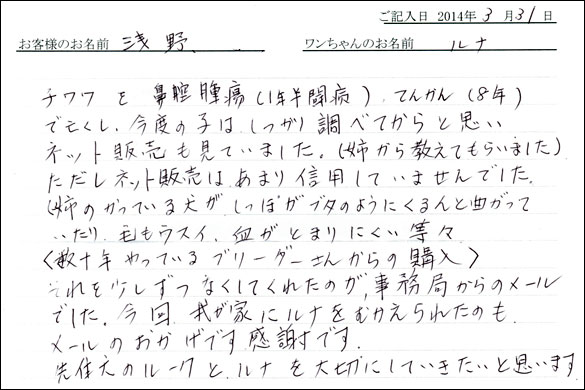 ご記入日 2014年 3月 31日
お客様のお名前 浅野 ワンちゃんのお名前 ルナ
チワワを鼻腔腫瘍(1年半闘病)、てんかん(8年)
で亡くし、今度の子はしっかり調べてからと思い
ネット販売も見ていました。(姉から教えてもらいました)
ただしネット販売は、あまり信用していませんでした。
(姉のかっている犬が、しっぽがブタのようにくるんと曲がって
いたり、毛もウスイ、血がとまりにくい等々
<数十年やっているブリーダーさんからの購入>
それを少しずつなくしてくれたのが、事務局からのメール
でした。今回、我が家にルナをむかえられたのも
メールのおかげです。感謝です。
先住犬のルークと、ルナを大切にしていきたいと思います